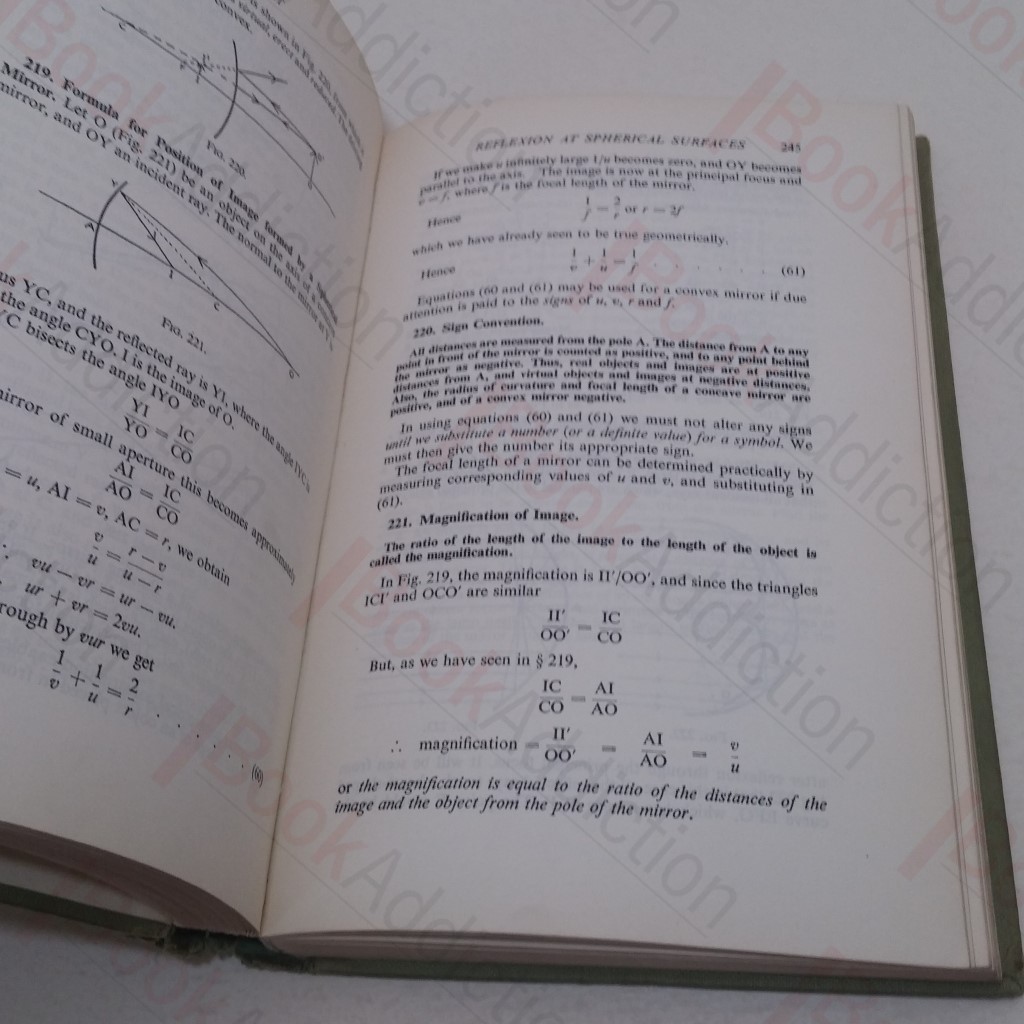 is shown in Fig. 220.
virtual, erect and reduced. The
convex.
FIG. 220.
219. Formula for Position of Image formed by a Spherical
Mirror. Let O (Fig. 221) be an object on the axis of a
mirror, and OY an incident ray. The normal to the mirror at Y
Y
A
I
C
O
FIG. 221.
us YC, and the reflected ray is YI, where the angle IYC is
the angle CYO, I is the image of O.
YC bisects the angle IYO
YI/YO = IC/CO
mirror of small aperture this becomes approximately
AI/AO = IC/CO
= u, AI = v, AC = r, we obtain
v/u = r − v/u − r
∴ vu − vr = ur − vu.
ur + vr = 2vu.
rough by vur we get
1/v + 1/u = 2/r . . . . . . . (60)
REFLEXION AT SPHERICAL SURFACES 245
If we make u infinitely large 1/u becomes zero, and OY becomes
parallel to the axis. The image is now at the principal focus and
v = f, where f is the focal length of the mirror.
Hence 1/f = 2/r or r = 2f
which we have already seen to be true geometrically.
Hence 1/v + 1/u = 1/f . . . . . (61)
Equations (60 and (61) may be used for a convex mirror if due
attention is paid to the signs of u, v, r and f.
220. Sign Convention.
All distances are measured from the pole A. The distance from A to any
point in front of the mirror is counted as positive, and to any point behind
the mirror as negative. Thus, real objects and images are at positive
distances from A, and virtual objects and images at negative distances.
Also, the radius of curvature and focal length of a concave mirror are
positive, and of a convex mirror negative.
In using equations (60) and (61) we must not alter any signs
until we substitute a number (or a definite value) for a symbol. We
must then give the number its appropriate sign.
The focal length of a mirror can be determined practically by
measuring corresponding values of u and v, and substituting in
(61).
221. Magnification of Image.
The ratio of the length of the image to the length of the object is
called the magnification.
In Fig. 219, the magnification is II′/OO′, and since the triangles
ICI′ and OCO′ are similar
II′/OO′ = IC/CO
But, as we have seen in § 219,
IC/CO = AI/AO
∴ magnification = II′/OO′ = AI/AO = v/u
or the magnification is equal to the ratio of the distances of the
image and the object from the pole of the mirror.
BookAddiction